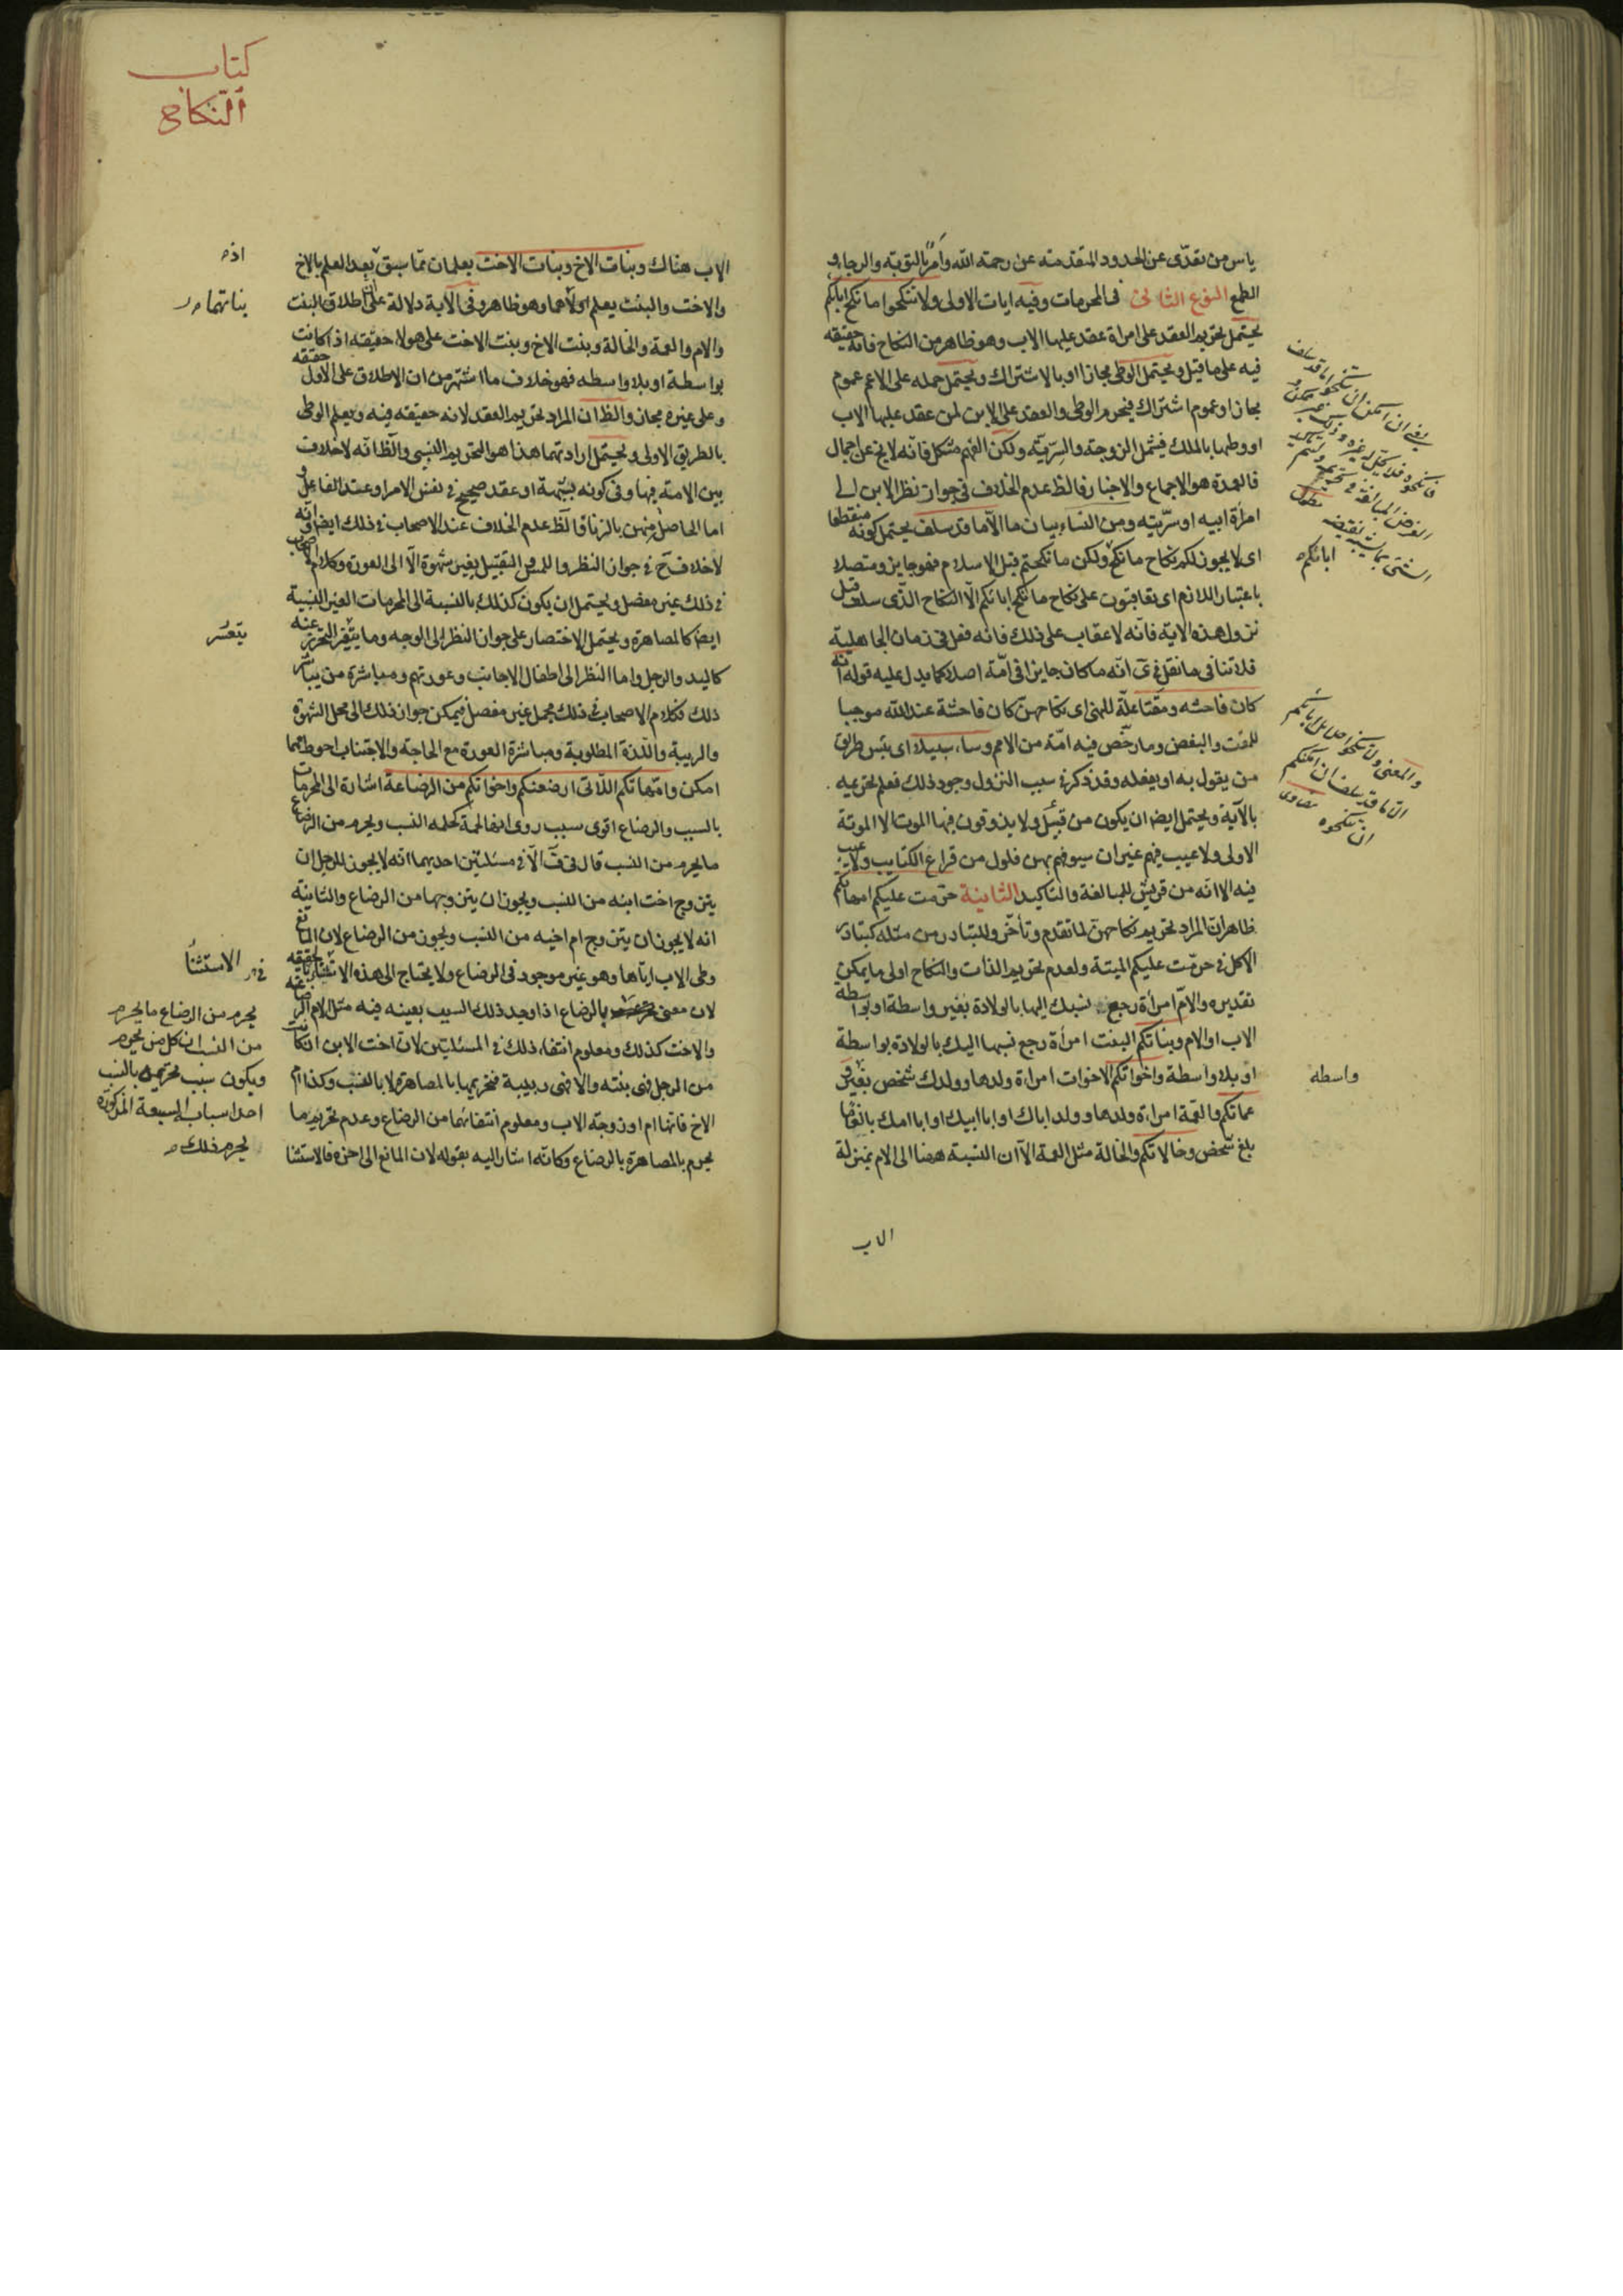 ياس من تعدى عن الحدود المتقدمة عن رحمة الله وأمر بالتوبة والرجاء و
الطمع النوع الثالث في المحرمات وفيه ايات الاولى ولا تنكحوا ما نكح اباؤكم
يحتمل تحريم العقد على امراة عقد عليها الاب وهو ظاهر من النكاح فانه حقيقة
فيه على ما قيل ويحتمل الوطى مجازا او بالاشتراك ويحتمل حمله على الاعم عموم
مجاز او عموم اشتراك فيحرم الوطى والعقد على الابن لمن عقد عليها الاب
او وطيها بالملك فيشمل الزوجة والسرية ولكن الفهم مشكل فانه لا يخ عن اجمال
فالعمدة هو الاجماع والاخبار فالظ عدم الخلاف في جواز نظر الابن الى
امرأة ابيه او سريته ومن النساء بيان ما الا ما قد سلف يحتمل كونه منقطعا
اى لا يجوز لكم نكاح ما نكح ولكن ما نكحتم قبل الاسلام فهو جايز ومتصلا
باعتبار اللازم اى تعاقبون على نكاح ما نكح اباؤكم الا النكاح الذى سلف قبل
نزول هذه الاية فانه لا عقاب على ذلك فانه فعل في زمان الجاهلية
فلا تنافى ما نقل في ى انه ما كان جايزا في امة اصلا كما يدل عليه قوله انه
كان فاحشه ومقتا علة للنهى اى نكاحهن كان فاحشة عند الله موجبا
للمقت والبغض وما رخص فيه امة من الامم وساء سبيلا اى بئس طريق
من يقول به او يفعله وقد ذكر في سبب النزول وجود ذلك فعلم تحريمه
بالآية ويحتمل ايضا ان يكون من قبيل ولا يذوقون فيها الموت الا الموتة
الاولى ولا عيب فيهم غير ان سيوفهم بهن فلول من قراع الكتايب ولا عيب
فيه الا انه من قريش للمبالغة والتاكيد الثانية حرمت عليكم امهاتكم
ظاهر ان المراد تحريم نكاحهن لما تقدم وتأخر وللتبادر من مثله كتبادر
الاكل في حرمت عليكم الميتة ولعدم تحريم الذات والنكاح اولى ما يمكن
تقديره والام امرأة رجع نسبك اليها بالولادة بغير واسطة او بواسطه
الاب او الام وبناتكم البنت امرأة رجع نسبها اليك بالولادة بواسطة
او بلا واسطة واخواتكم الاخوات امراة ولدها وولدك شخص بغير
عماتكم والعمة امراة ولدها وولد اباك او ابا ابيك او ابا امك بالغا ما
بلغ شخص وخالاتكم والخالة مثل العمة الا ان النسبة ههنا الى الام بمنزلة
الاب
يعنى ان امكن ان تنكحوا ما قد سلف
فانكحوه فلا يحل لكم غيره وذلك غير ممكن و
الغرض المبالغة في تحريمه
اباؤكم
والمعنى ولا تنكحوا حلايل ابائكم
الا ما قد سلف ان امكنكم
ان تنكحوه
واسطه
كتاب
النكاح
الاب هناك وبنات الاخ وبنات الاخت يعلمان مما سبق بعد العلم بالاخ
والاخت والبنت يعلم اولاهما وهو ظاهر وفى الآية دلالة على اطلاق البنت
والام والعمة والخالة وبنت الاخ وبنت الاخت على هولاء حقيقه اذا كانت
بواسطة او بلا واسطه فهو خلاف ما اشتهر من ان الاطلاق على الاول حقيقه
وعلى غيره مجاز والظ ان المراد تحريم العقد لانه حقيقه فيه ويعلم الوطى
بالطريق الاولى ويحتمل ارادتهما هذا هو التحريم النسبى والظ انه لا خلاف
بين الامة فيها وفى كونه بشبهة او عقد صحيح في نفس الامر او عند الفاعل و
اما الحاصل منهن بالزنا فالظ عدم الخلاف عند الاصحاب في ذلك ايضا وانه
لا خلاف ح في جواز النظر واللمس والتقبيل بغير شهوة الا الى العورة وكلام الاصحاب
في ذلك غير مفصل ويحتمل ان يكون كذلك بالنسبة الى المحرمات الغير النسبية
ايضا كالمصاهرة ويحتمل الاختصار على جواز النظر الى الوجه وما يتعسر التحرز عنه
كاليد والرجل واما النظر الى اطفال الاجانب وعورتهم ومباشرة من يباشر
ذلك فكلام الاصحاب في ذلك مجمل غير مفصل فيمكن جواز ذلك الى محل الشهوة
والريبة واللذة المطلوبة ومباشرة العورة مع الحاجة والاجتناب احوط مهما
امكن وامهاتكم اللاتى ارضعنكم واخواتكم من الرضاعة اشارة الى المحرمات
بالسبب والرضاع اقوى سبب روى انها لحمة كلحمه النسب ويحرم من الرضاع
ما يحرم من النسب قال في ف الا في مسئلتين احديهما انه لا يجوز للرجل ان
يتزوج اخت ابنه من النسب ويجوز ان يتزوجها من الرضاع والثانية
انه لا يجوز ان يتزوج ام اخيه من النسب ويجوز من الرضاع لان المانع
وطى الاب اياها وهو غير موجود في الرضاع ولا يحتاج الى هذه الاستثناء
لان معنى يحرم بالرضاع اذا وجد ذلك السبب بعينه فيه مثل الام الرضاعية
والاخت كذلك ومعلوم انتفاء ذلك في المسئلتين لان اخت الابن ان كانت
من الرجل فهى بنته والا فهى ربيبة فتحريمها بالمصاهرة لا بالنسب وكذا ام
الاخ فانها ام او زوجة الاب ومعلوم انتفائهما من الرضاع وعدم تحريم ما
يحرم بالمصاهرة بالرضاع وكانه اشار اليه بقوله لان المانع الى اخره فالاستثنا
بناتهما
يتعسر
الاستثنأ
يحرم من الرضاع ما يحرم
من النسب ان كل من يحرم
ويكون سبب تحريمه بالنسب
احد اسباب السبعة المذكورة
يحرم فلك